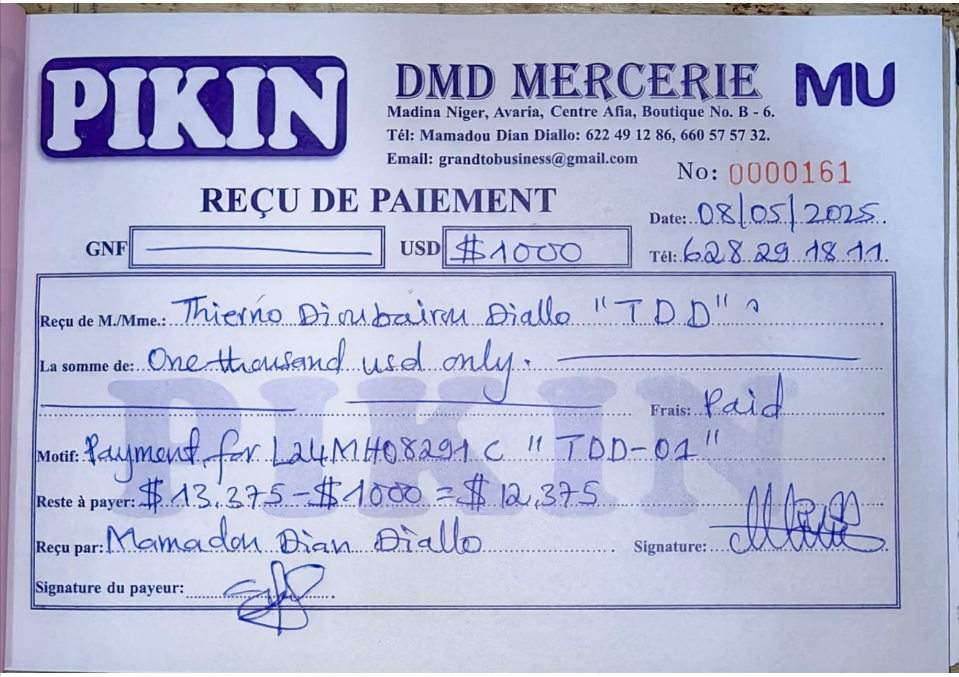 PIKIN
DMD MERCERIE MU
Madina Niger, Avaria, Centre Afia, Boutique No. B - 6.
Tél: Mamadou Dian Diallo: 622 49 12 86, 660 57 57 32.
Email: grandtobusiness@gmail.com
No: 0000161
REÇU DE PAIEMENT
Date: 08/05/2025
GNF USD $1000
Tél: 628 29 18 11
Reçu de M./Mme.: Thierno Dioubairou Diallo "TDD"
La somme de: One thousand usd only.
Frais: Paid
Motif: Payment for L24MH08291 C "TDD-01"
Reste à payer: $13,375-$1000 = $12,375
Reçu par: Mamadou Dian Diallo Signature:
Signature du payeur:
PIKIN